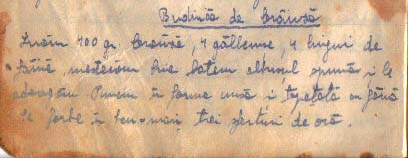 Budincă de brânză
Luăm 400 gr. brânză, 4 gălbenuse, 4 linguri de
făină, mestecăm bine batem albusul spumă i le
adaugăm Punem în forma unsă i tapetată cu făină
Se fierbe în ben-mari trei sferturi de oră.